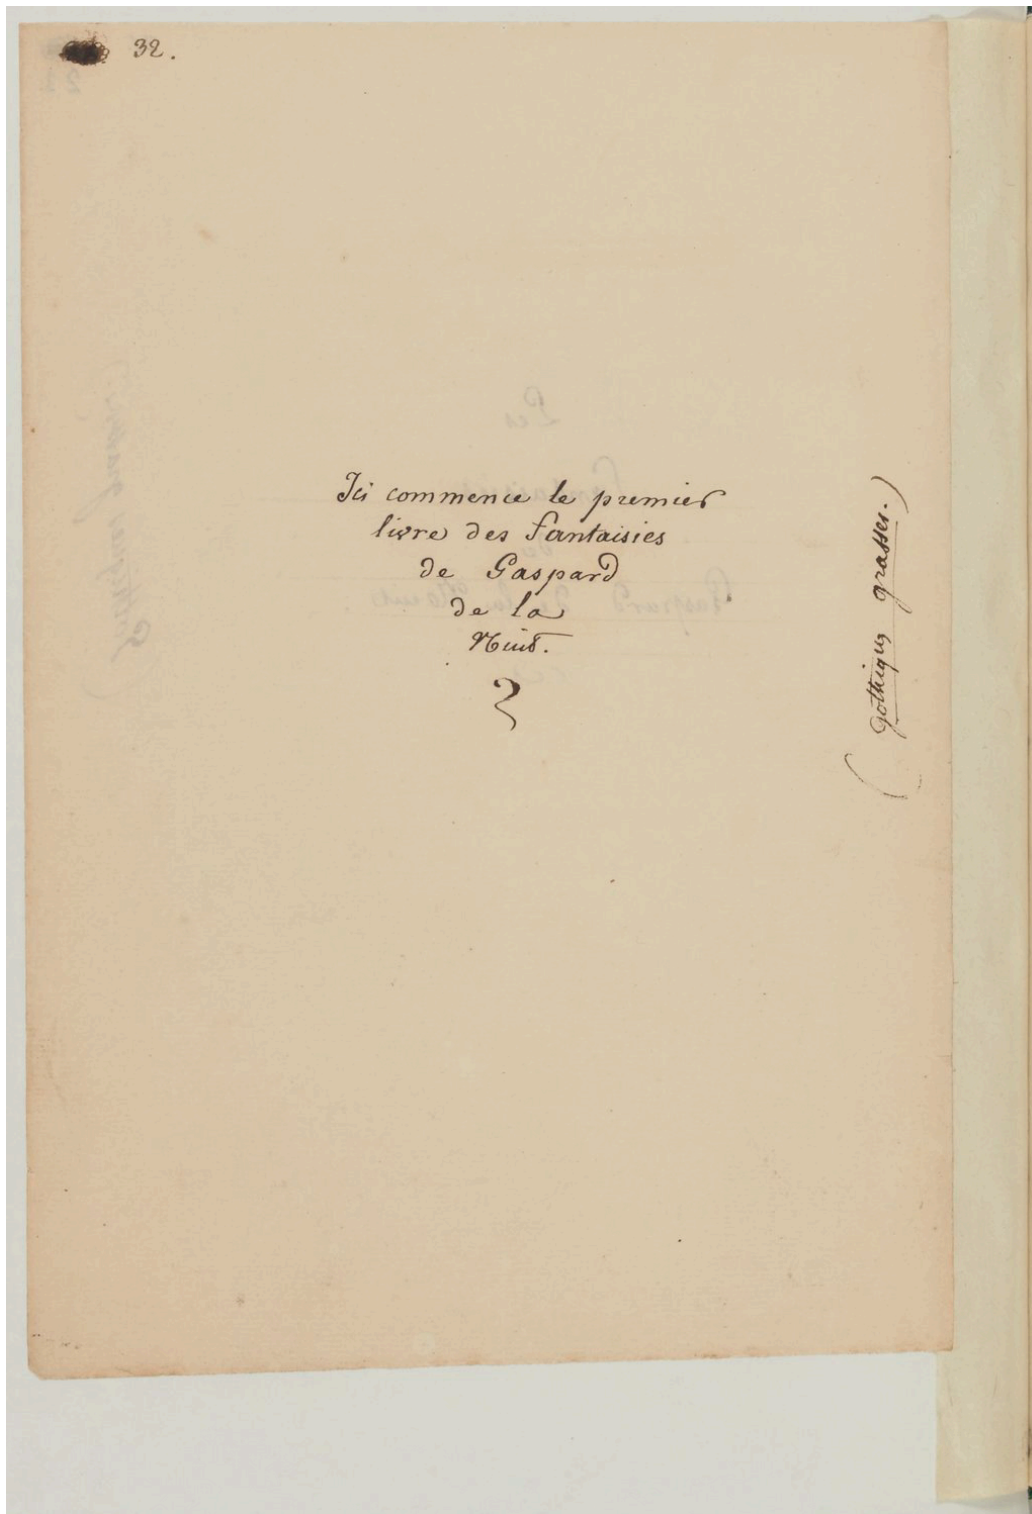 32.
Ici commence le premier
livre des fantaisies
de Gaspard
de la
Nuit.
(gothiques grasses.)